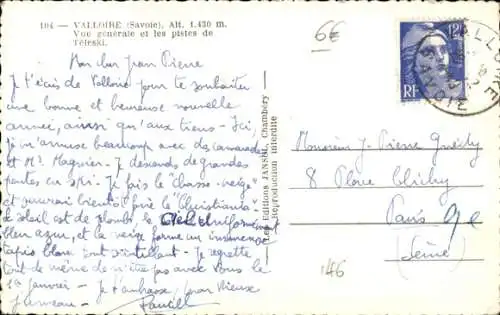 104 — VALLOIRE (Savoie), Alt. 1.430 m.
Vue générale et les pistes de
Téléski.
6€
Mon cher Jean Pierre
Je t'écris de Valloire pour te souhaiter
une bonne et heureuse nouvelle
année, ainsi qu'aux tiens - Ici,
je m'amuse beaucoup avec des camarades
et Mr. Magnier. Je descends de grandes
pentes en ski. Je fais le "chasse-neige"
et pourrai bientôt faire le "Christiania"
le soleil est de plomb, le Ciel uniformément
bleu azur, et la neige forme un immense
tapis blanc tout scintillant - Je regrette
tout de même de n'être pas avec vous le
1er janvier - Je t'embrasse, mon vieux
Jumeau -
Les Editions JANSOL, Chambéry
Reproduction interdite
12F
RF
VALLOIRE
SAVOIE
Monsieur J-Pierre
8 Place Clichy
Paris 9e
(Seine)
146